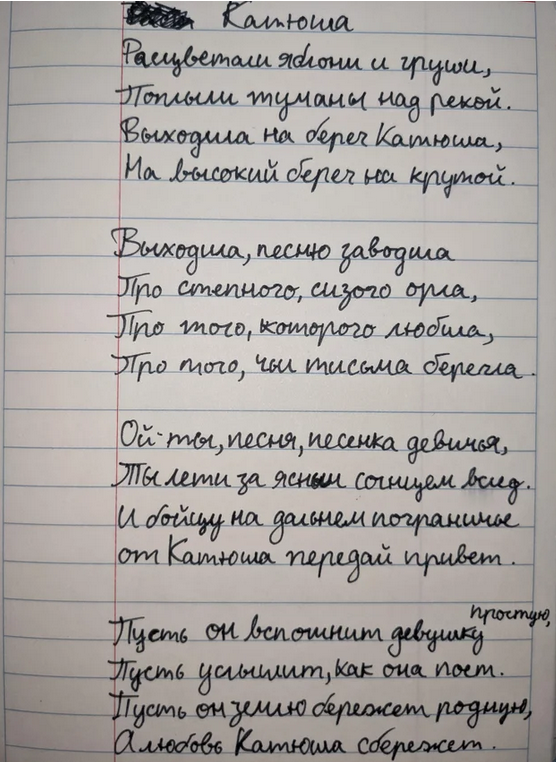 Катюша
Расцветали яблони и груши,
Поплыли туманы над рекой.
Выходила на берег Катюша,
На высокий берег на крутой.
Выходила, песню заводила
Про степного, сизого орла,
Про того, которого любила,
Про того, чьи письма берегла.
Ой ты, песня, песенка девичья,
Ты лети за ясным солнцем вслед.
И бойцу на дальнем пограничье
от Катюша передай привет.
Пусть он вспомнит девушку простую,
Пусть услышит, как она поет.
Пусть он землю бережет родную,
А любовь Катюша сбережет.